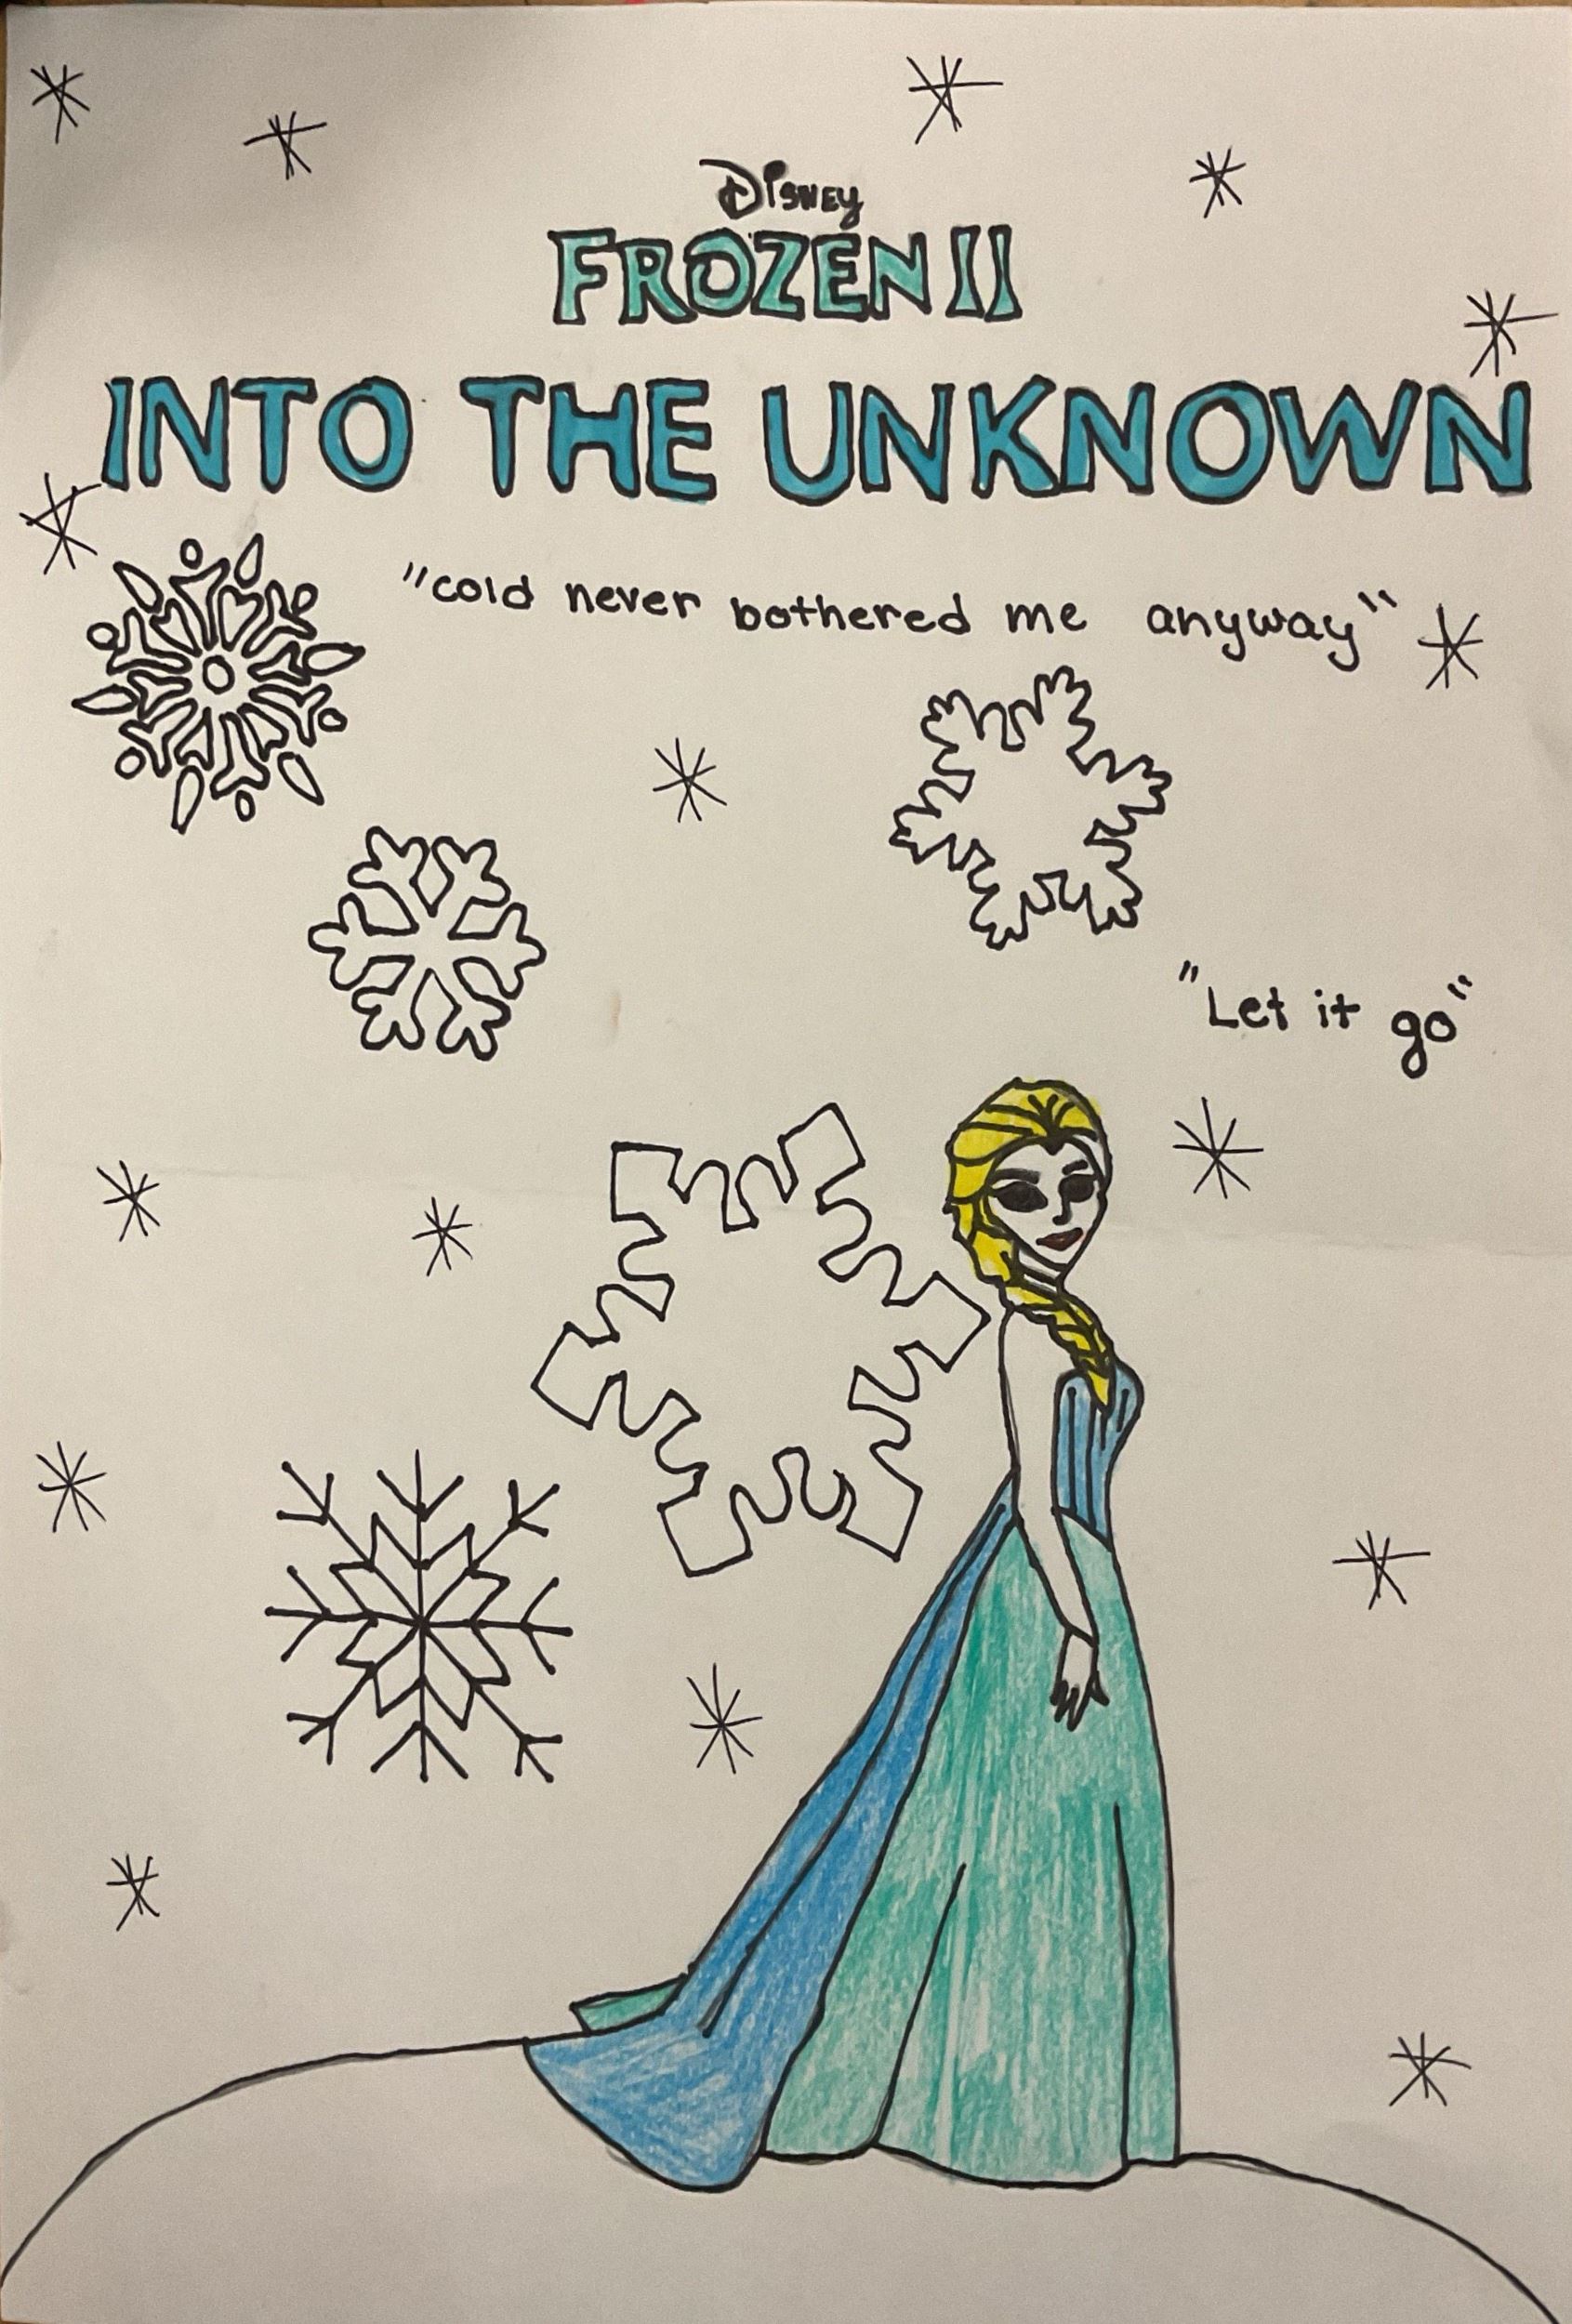 Disney
FROZEN II
INTO THE UNKNOWN
"cold never bothered me anyway"
"Let it go"